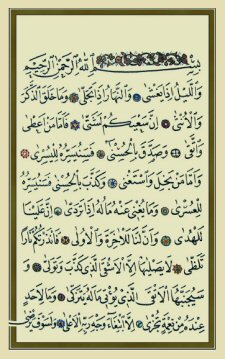 بِسْمِ اللَّهِ الرَّحْمَنِ الرَّحِيمِ
وَاللَّيْلِ إِذَا يَغْشَى وَالنَّهَارِ إِذَا تَجَلَّى وَمَا خَلَقَ الذَّكَرَ
وَالْأُنْثَى إِنَّ سَعْيَكُمْ لَشَتَّى فَأَمَّا مَنْ أَعْطَى
وَاتَّقَى وَصَدَّقَ بِالْحُسْنَى فَسَنُيَسِّرُهُ لِلْيُسْرَى
وَأَمَّا مَنْ بَخِلَ وَاسْتَغْنَى وَكَذَّبَ بِالْحُسْنَى فَسَنُيَسِّرُهُ
لِلْعُسْرَى وَمَا يُغْنِي عَنْهُ مَالُهُ إِذَا تَرَدَّى إِنَّ عَلَيْنَا
لَلْهُدَى وَإِنَّ لَنَا لَلْآخِرَةَ وَالْأُولَى فَأَنْذَرْتُكُمْ نَارًا
تَلَظَّى لَا يَصْلَاهَا إِلَّا الْأَشْقَى الَّذِي كَذَّبَ وَتَوَلَّى وَ
سَيُجَنَّبُهَا الْأَتْقَى الَّذِي يُؤْتِي مَالَهُ يَتَزَكَّى وَمَا لِأَحَدٍ
عِنْدَهُ مِنْ نِعْمَةٍ تُجْزَى إِلَّا ابْتِغَاءَ وَجْهِ رَبِّهِ الْأَعْلَى وَلَسَوْفَ يَرْضَى